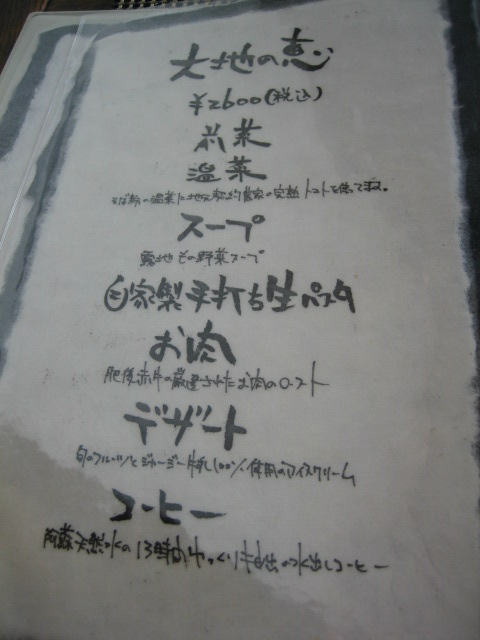 大地の恵
¥2600(税込)
前菜
温菜
の温菜に地元契約農家の完熟トマトを使ってます。
スープ
露地もの野菜スープ
自家製手打ち生パスタ
お肉
肥後赤牛の厳選されたお肉のロースト
デザート
旬のフルーツとジャージー牛乳100%使用のアイスクリーム
コーヒー
阿蘇天然水の13時間ゆっくり抽出の水出しコーヒー